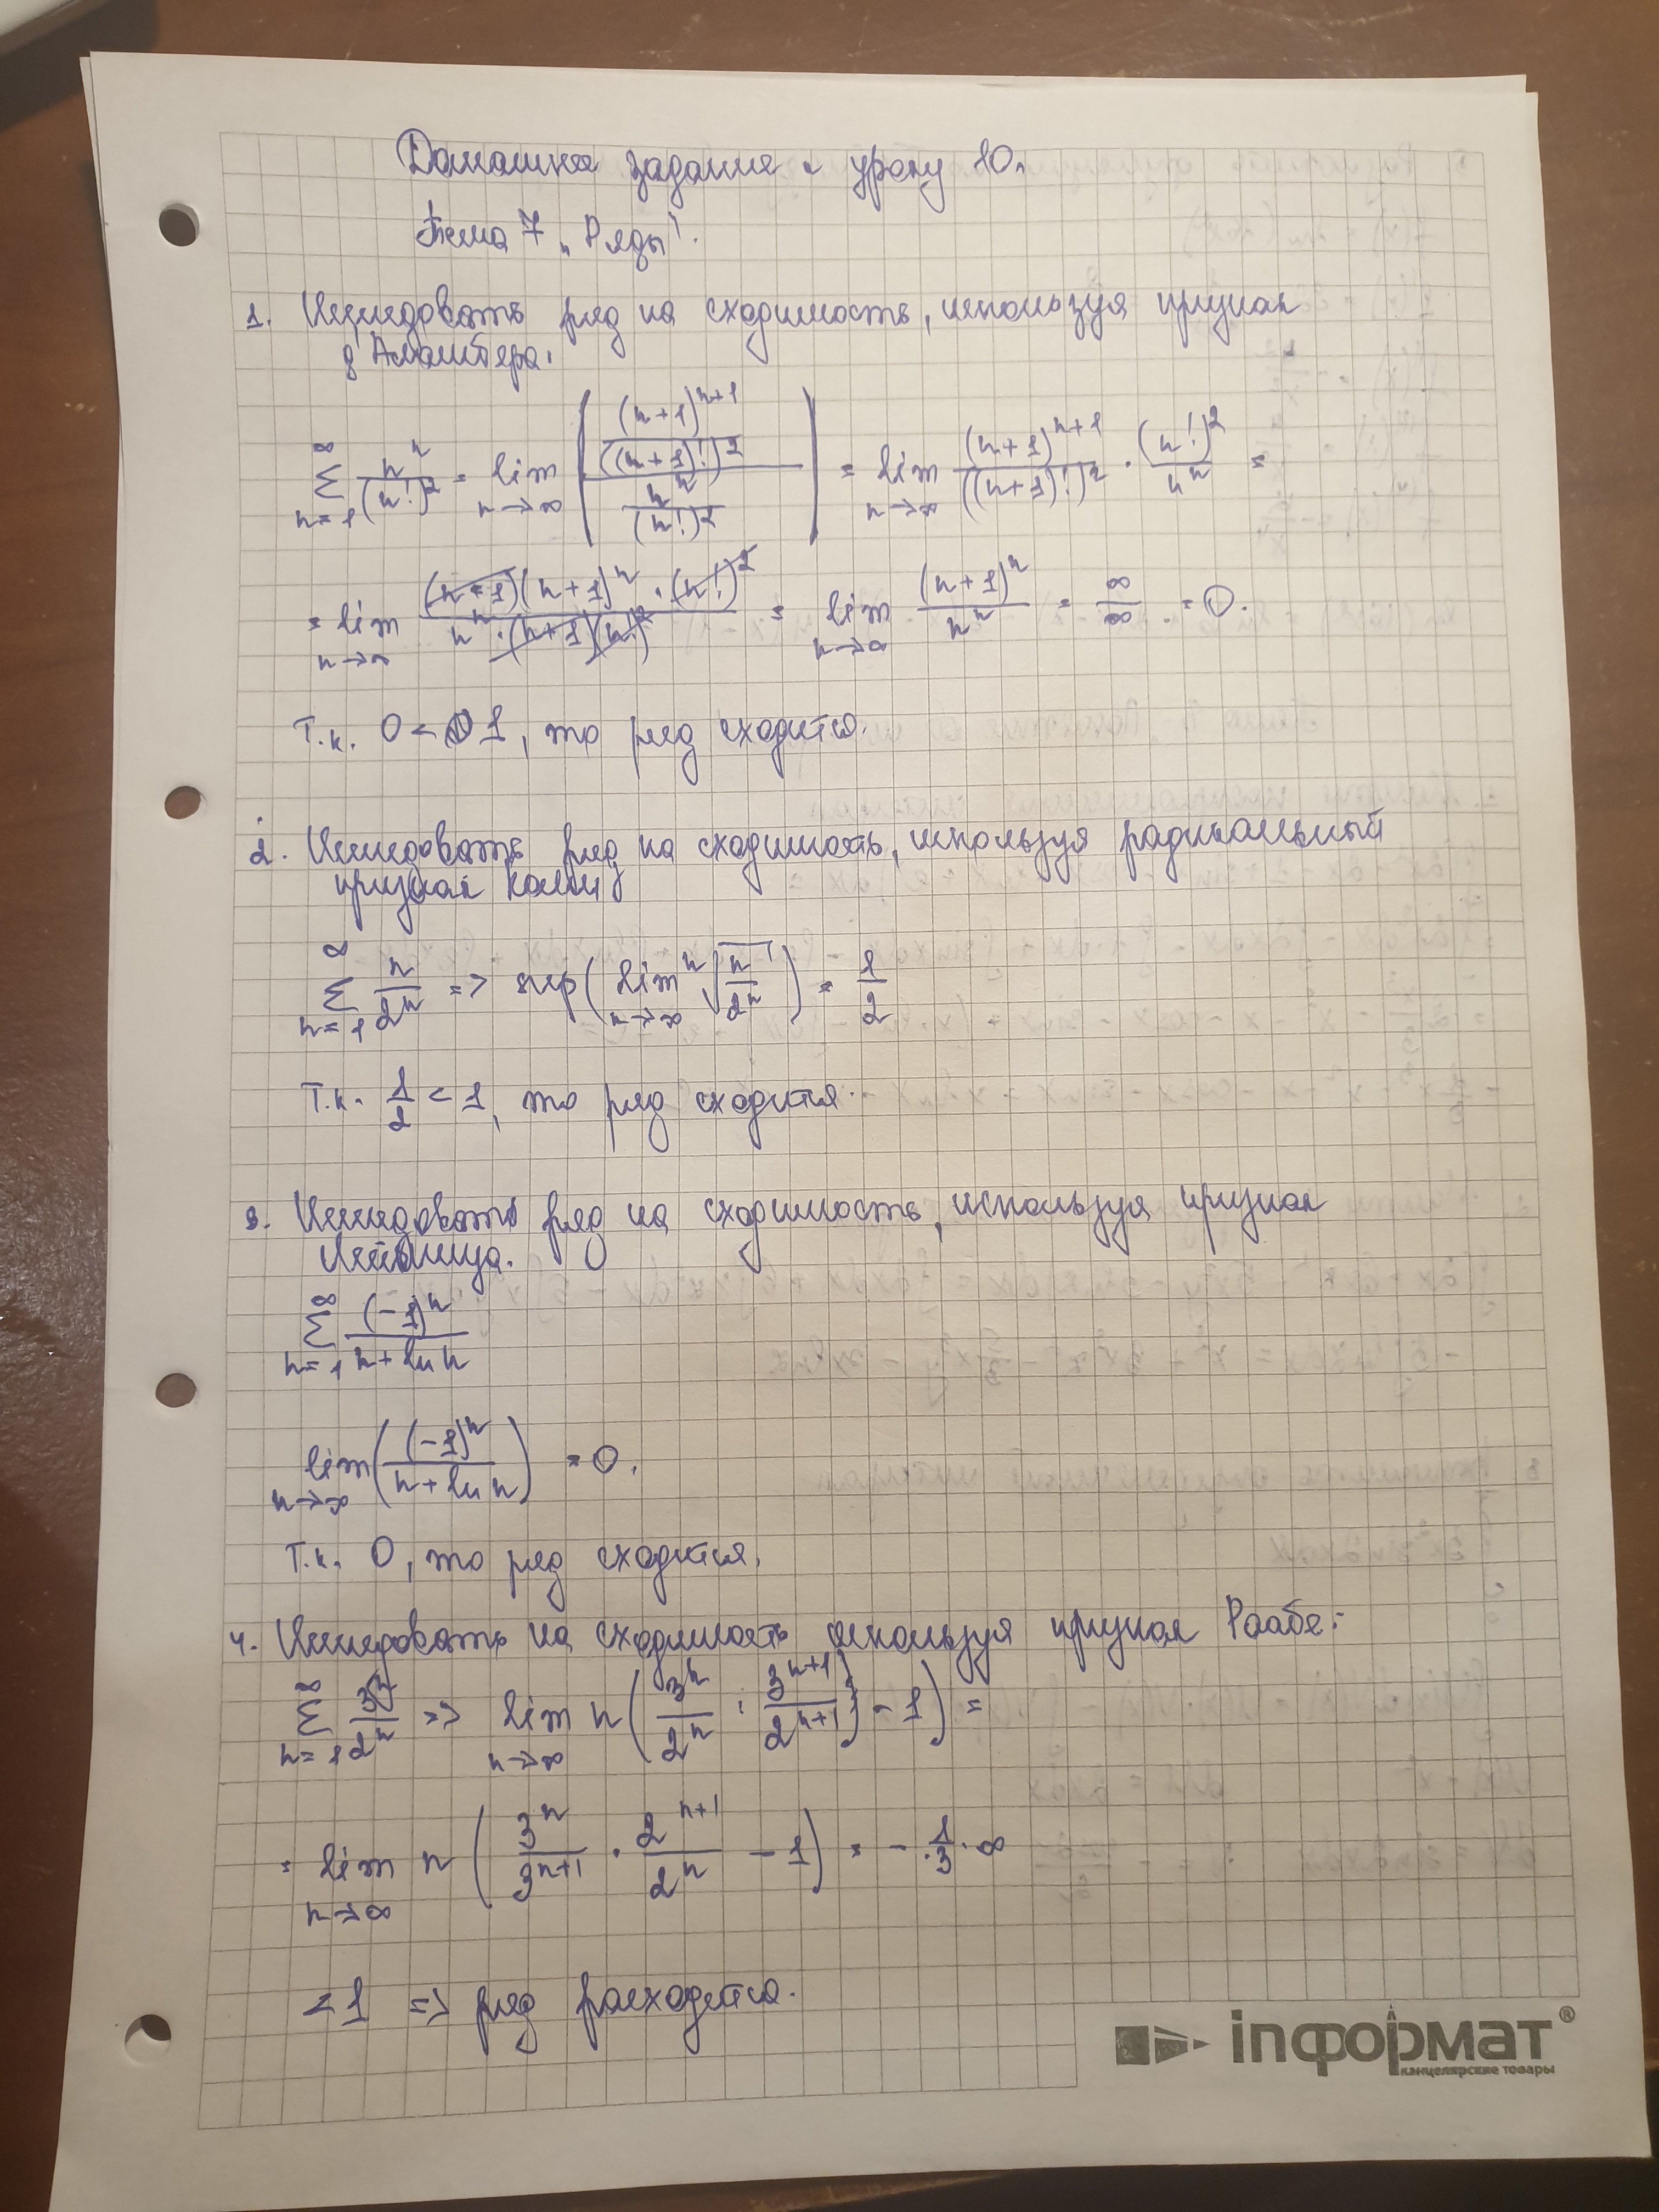 Домашнее задание к уроку 10.
Тема 7 „Ряды".
1. Исследовать ряд на сходимость, используя признак
д'Аламбера.
∞ ∑ n=1 n^n/(n!)^2 = lim n→∞ | ((n+1)^(n+1)/((n+1)!)^2) / (n^n/(n!)^2) | = lim n→∞ (n+1)^(n+1)/((n+1)!)^2 · (n!)^2/n^n =
= lim n→∞ ((n+1)(n+1)^n · (n!)^2)/(n^n · (n+1)(n!)^2) = lim n→∞ (n+1)^n/n^n = ∞/∞ = 0.
Т.к. 0 < 1, то ряд сходится.
2. Исследовать ряд на сходимость, используя радикальный
признак Коши
∞ ∑ n=1 n/2^n => sup( lim n→∞ ^n√(n/2^n) ) = 1/2
Т.к. 1/2 < 1, то ряд сходится.
3. Исследовать ряд на сходимость, используя признак
Лейбница.
∞ ∑ n=1 (-1)^n/(n + ln n)
lim n→∞ ( (-1)^n/(n + ln n) ) = 0.
Т.к. 0, то ряд сходится.
4. Исследовать на сходимость используя признак Раабе:
∞ ∑ n=1 3^n/2^n => lim n→∞ n( 3^n/2^n : 3^(n+1)/2^(n+1) ) - 1) =
= lim n→∞ n ( 3^n/3^(n+1) · 2^(n+1)/2^n - 1) = - 1/3 · ∞
< 1 => ряд расходится.
iнформат®
канцелярские товары